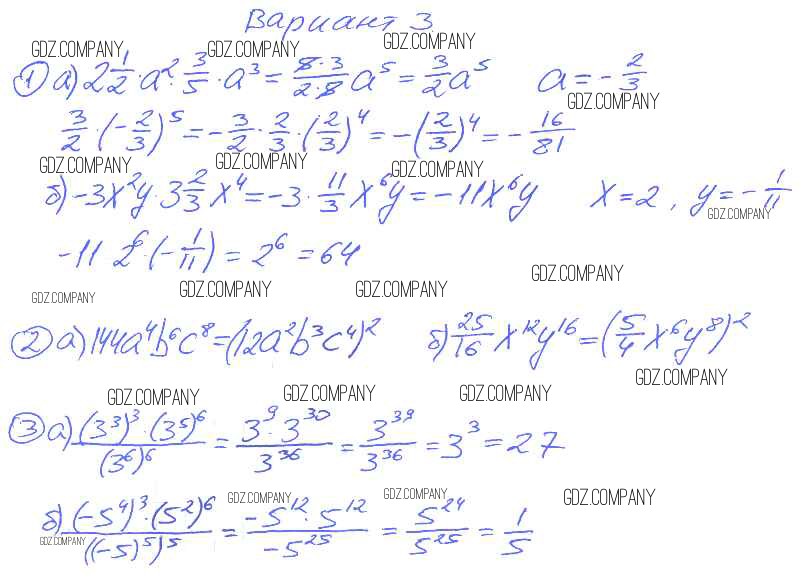 Вариант 3
GDZ.COMPANY GDZ.COMPANY GDZ.COMPANY
① а) 2 1/2 · a² · 3/5 · a³ = (5·3)/(2·5) a⁵ = 3/2 a⁵ a = -2/3
GDZ.COMPANY
3/2 · (-2/3)⁵ = -3/2 · 2/3 · (2/3)⁴ = -(2/3)⁴ = -16/81
GDZ.COMPANY GDZ.COMPANY GDZ.COMPANY
б) -3x²y · 3 2/3 x⁴ = -3 · 11/3 x⁶y = -11x⁶y x = 2, y = -1/11
GDZ.COMPANY
-11 2⁶ (-1/11) = 2⁶ = 64
GDZ.COMPANY GDZ.COMPANY GDZ.COMPANY GDZ.COMPANY
② а) 144a⁴b⁶c⁸ = (12a²b³c⁴)² б) 25/16 x¹²y¹⁶ = (5/4 x⁶y⁸)²
GDZ.COMPANY GDZ.COMPANY GDZ.COMPANY GDZ.COMPANY
③ а) ((3³)³ · (3⁵)⁶)/(3⁶)⁶ = (3⁹ · 3³⁰)/3³⁶ = 3³⁹/3³⁶ = 3³ = 27
GDZ.COMPANY GDZ.COMPANY GDZ.COMPANY
б) ((-5⁴)³ · (5²)⁶)/((-5)⁵)⁵ = (-5¹² · 5¹²)/(-5²⁵) = 5²⁴/5²⁵ = 1/5
GDZ.COMPANY